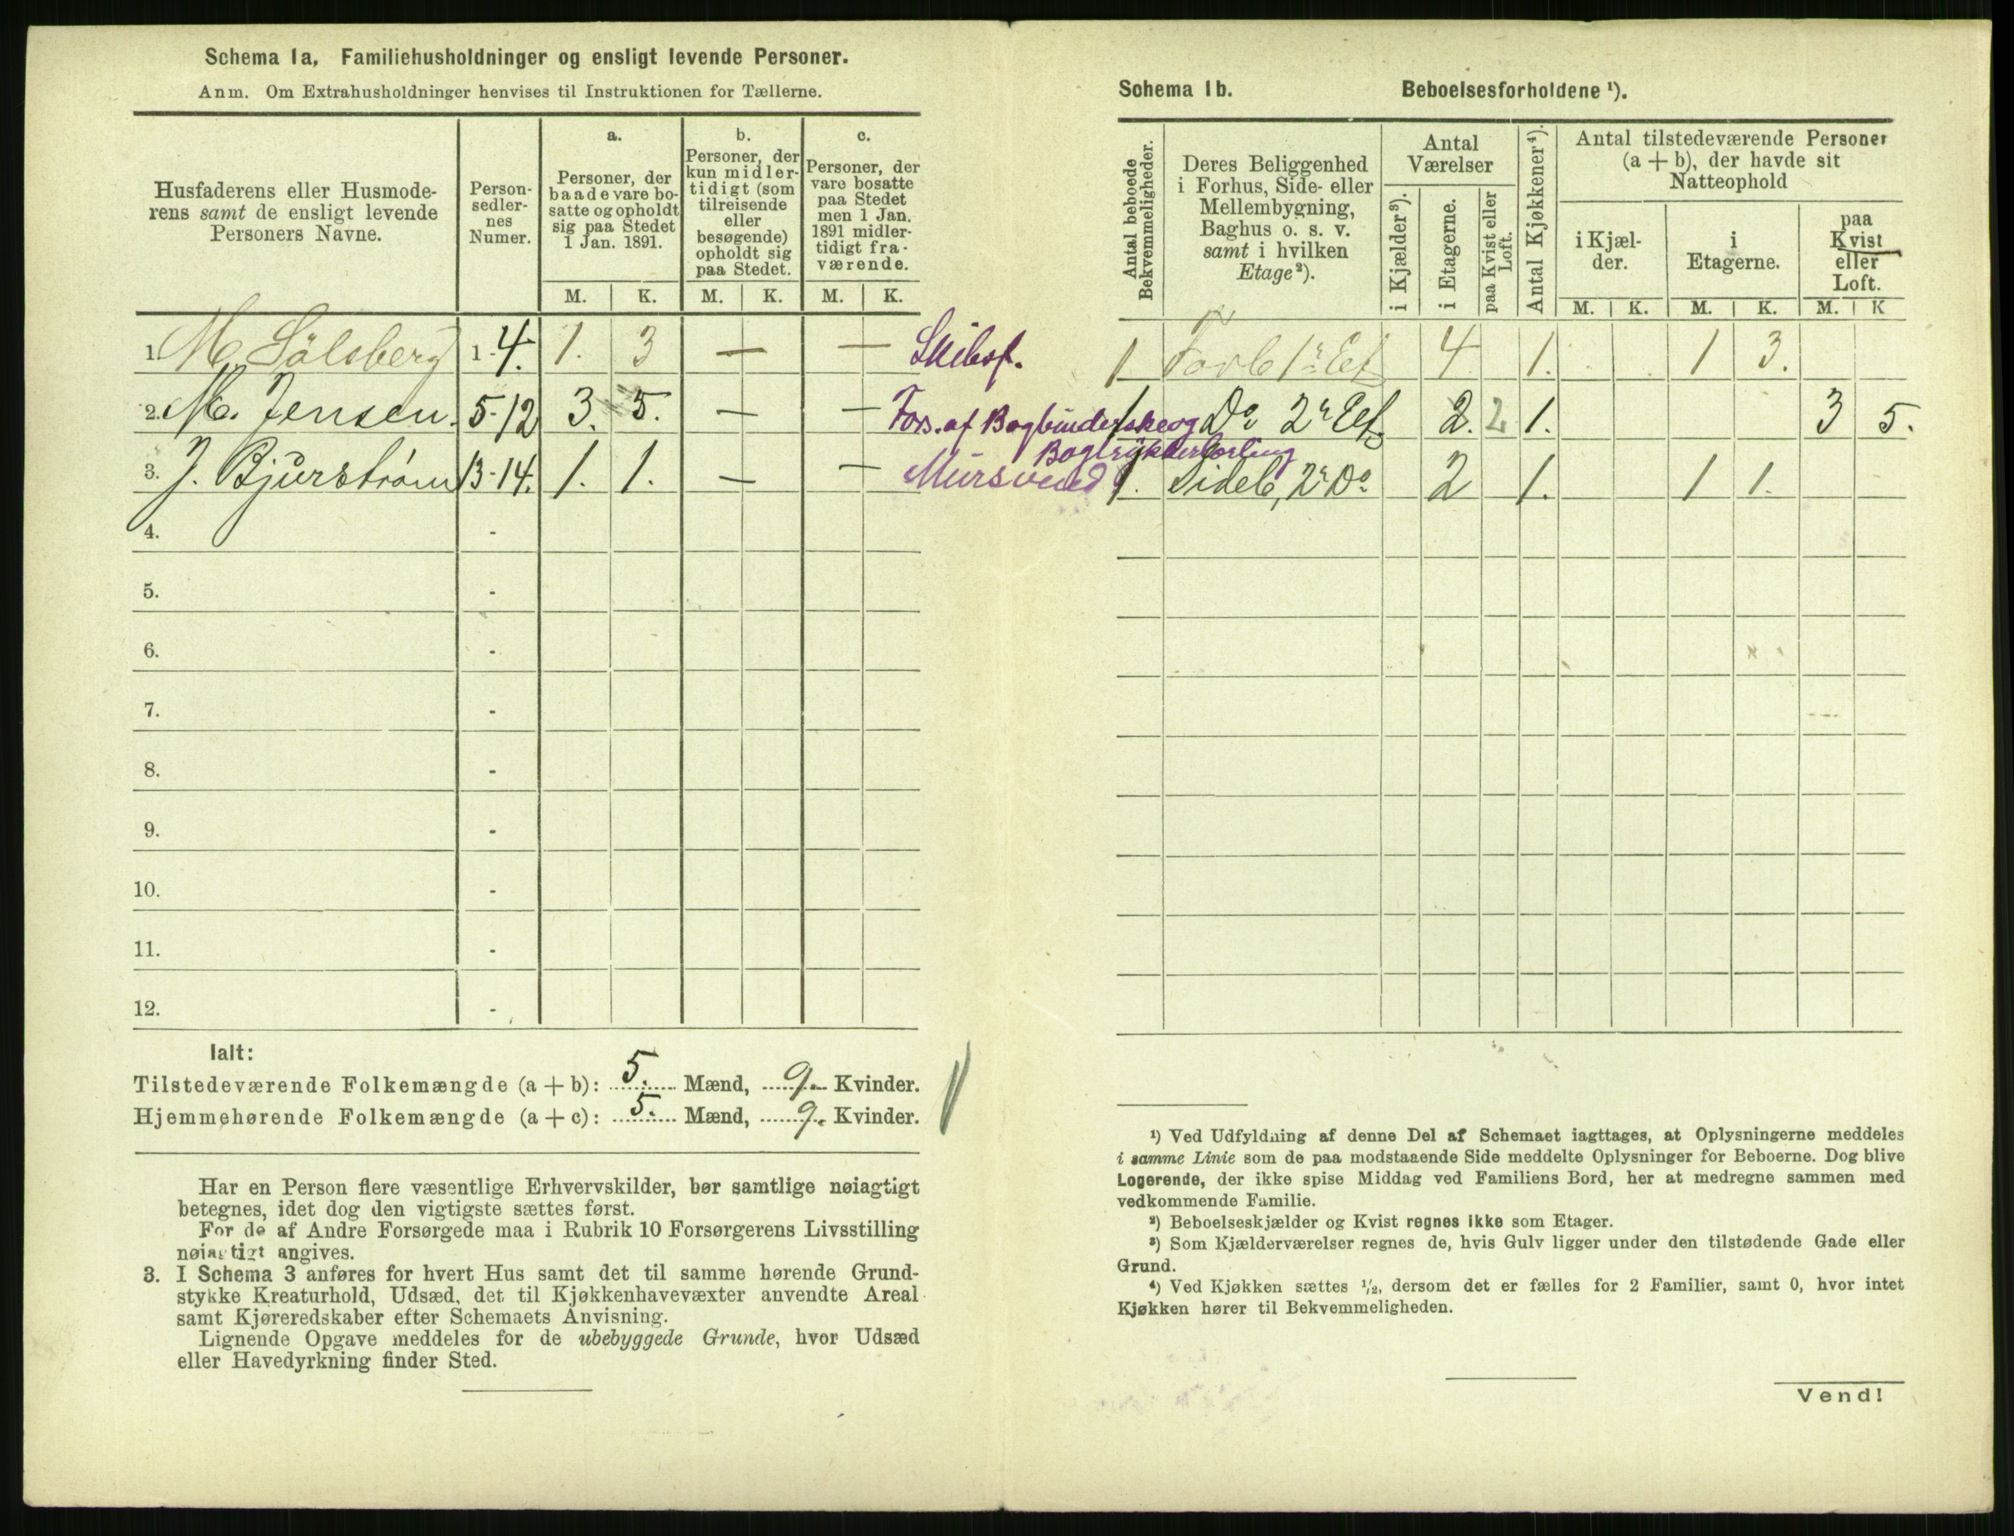 Schema 1a, Familiehusholdninger og ensligt levende Personer.
Anm. Om Extrahusholdninger henvises til Instruktionen for Tællerne.
Husfaderens eller Husmode-
rens samt de ensligt levende
Personers Navne.
Person-
sedler-
nes
Numer.
a.
Personer, der
baade vare bo-
satte og opholdt
sig paa Stedet
1 Jan. 1891.
b.
Personer, der
kun midler-
tidigt (som
tilreisende
eller
besøgende)
opholdt sig
paa Stedet.
c.
Personer, der
vare bosatte
paa Stedet
men 1 Jan.
1891 midler-
tidigt fra-
værende.
M. K. M. K. M. K.
1. M. Sölsberg 1-4. 1. 3 — — Skibsf.
2. M. Jensen. 5-12 3. 5. — — Fors. af Bogbinderske og
Bogtrykkerlærling
3. J. Bjurstrøm 13-14. 1. 1. — — Mursvend
4. -
5. -
6. -
7. -
8. -
9. -
10. -
11. -
12. -
Ialt:
Tilstedeværende Folkemængde (a + b): 5. Mænd, 9. Kvinder.
Hjemmehørende Folkemængde (a + c): 5. Mænd, 9. Kvinder.
Har en Person flere væsentlige Erhvervskilder, bør samtlige nøiagtigt
betegnes, idet dog den vigtigste sættes først.
For de af Andre Forsørgede maa i Rubrik 10 Forsørgerens Livsstilling
nøiagtigt angives.
3. I Schema 3 anføres for hvert Hus samt det til samme hørende Grund-
stykke Kreaturhold, Udsæd, det til Kjøkkenhavevæxter anvendte Areal
samt Kjøreredskaber efter Schemaets Anvisning.
Lignende Opgave meddeles for de ubebyggede Grunde, hvor Udsæd
eller Havedyrkning finder Sted.
Schema 1b. Beboelsesforholdene ¹).
Antal beboede
Bekvemmeligheder.
Deres Beliggenhed
i Forhus, Side- eller
Mellembygning,
Baghus o. s. v.
samt i hvilken
Etage²).
Antal
Værelser
i Kjælder³).
i Etagerne.
paa Kvist eller
Loft.
Antal Kjøkkener⁴).
Antal tilstedeværende Personer
(a + b), der havde sit
Natteophold
i Kjæl-
der.
i
Etagerne.
paa
Kvist
eller
Loft.
M. K. M. K. M. K
1 Forb 1ʳ Et 4 1. 1 3.
1 Dº 2ʳ Et 2. 2 1. 3 5.
1. Sideb, 2ʳ Dº 2 1. 1 1.
¹) Ved Udfyldning af denne Del af Schemaet iagttages, at Oplysningerne meddeles
i samme Linie som de paa modstaaende Side meddelte Oplysninger for Beboerne. Dog blive
Logerende, der ikke spise Middag ved Familiens Bord, her at medregne sammen med
vedkommende Familie.
²) Beboelseskjælder og Kvist regnes ikke som Etager.
³) Som Kjælderværelser regnes de, hvis Gulv ligger under den tilstødende Gade eller
Grund.
⁴) Ved Kjøkken sættes ¹/₂, dersom det er fælles for 2 Familier, samt 0, hvor intet
Kjøkken hører til Bekvemmeligheden.
Vend!